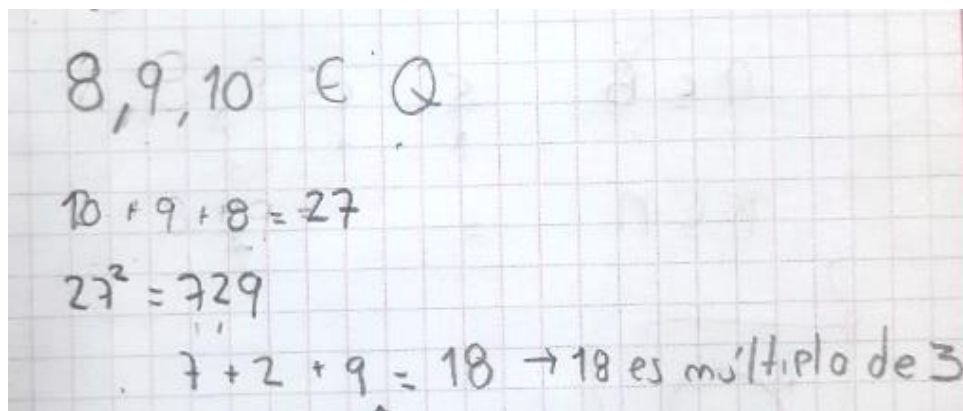 8,9,10 ∈ Q
10 + 9 + 8 = 27
27² = 729
7 + 2 + 9 = 18 → 18 es múltiplo de 3